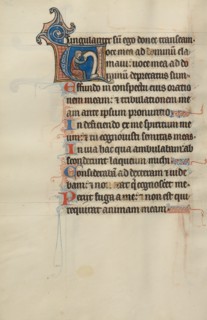 singulariter sū ego donec transeam
Voce mea ad dominum cla
maui: uoce mea ad do
minum deprecatus sum
Effundo in conspectu eius oratio
nem meam: & tribulationem me
am ante ipsum pronuntio
In deficiendo ex me spiritum me
um: & tu cognouisti semitas meas
In uia hac qua ambulabam ab
sconderunt laqueum michi
Considerabam ad dexteram & uide
bam: & non erat q cognosceret me
Periit fuga a me: & non est qui
requirat animam meam